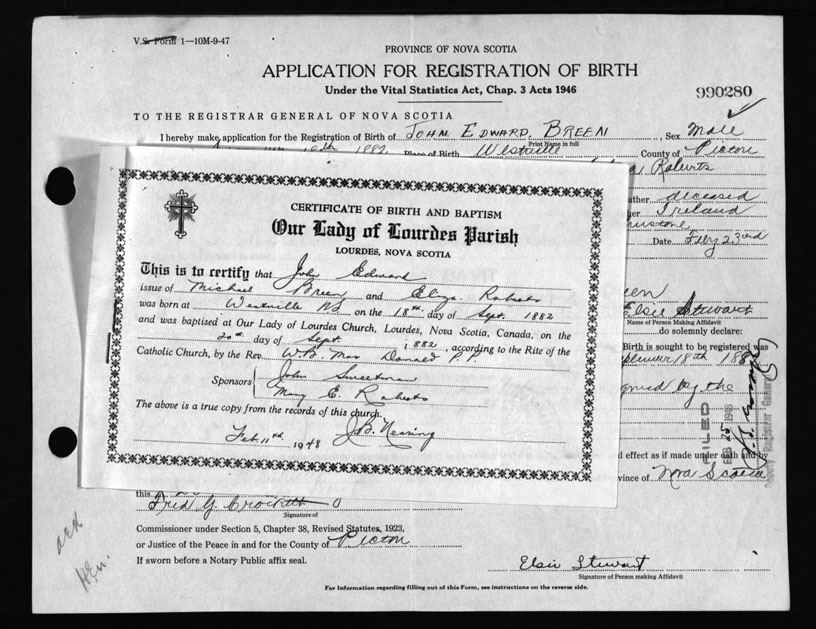 V.S. Form 1—10M-9-47
PROVINCE OF NOVA SCOTIA
APPLICATION FOR REGISTRATION OF BIRTH
Under the Vital Statistics Act, Chap. 3 Acts 1946
990280
TO THE REGISTRAR GENERAL OF NOVA SCOTIA
I hereby make application for the Registration of Birth of JOHN EDWARD BREEN, Sex Male
Print Name in full
18th 1882 Place of Birth Westville County of Pictou
Roberts
ather deceased
her Ireland
Date Feby 23rd
CERTIFICATE OF BIRTH AND BAPTISM
Our Lady of Lourdes Parish
LOURDES, NOVA SCOTIA
This is to certify that John Edward
issue of Michael Breen and Eliza. Roberts
was born at Westville NS on the 18th. day of Sept. 1882
and was baptised at Our Lady of Lourdes Church, Lourdes, Nova Scotia, Canada, on the
20th. day of Sept. 1882, according to the Rite of the
Catholic Church, by the Rev. WB. Mac Donald P.P.
Sponsors John Sweetman
Mary E. Roberts
The above is a true copy from the records of this church.
Feb. 11th. 1948 J.B. Nearing
een
Elsie Stewart
Name of Person Making Affidavit
do solemnly declare:
Birth is sought to be registered was
September 18th 188
signed by the
FILED
FEB 25 1948
Deputy Registrar General
d effect as if made under oath and by
vince of Nova Scotia
this
Fred G. Crockett
Signature of
Commissioner under Section 5, Chapter 38, Revised Statutes, 1923,
or Justice of the Peace in and for the County of Pictou
If sworn before a Notary Public affix seal.
Elsie Stewart
Signature of Person making Affidavit
For Information regarding filling out of this Form, see instructions on the reverse side.